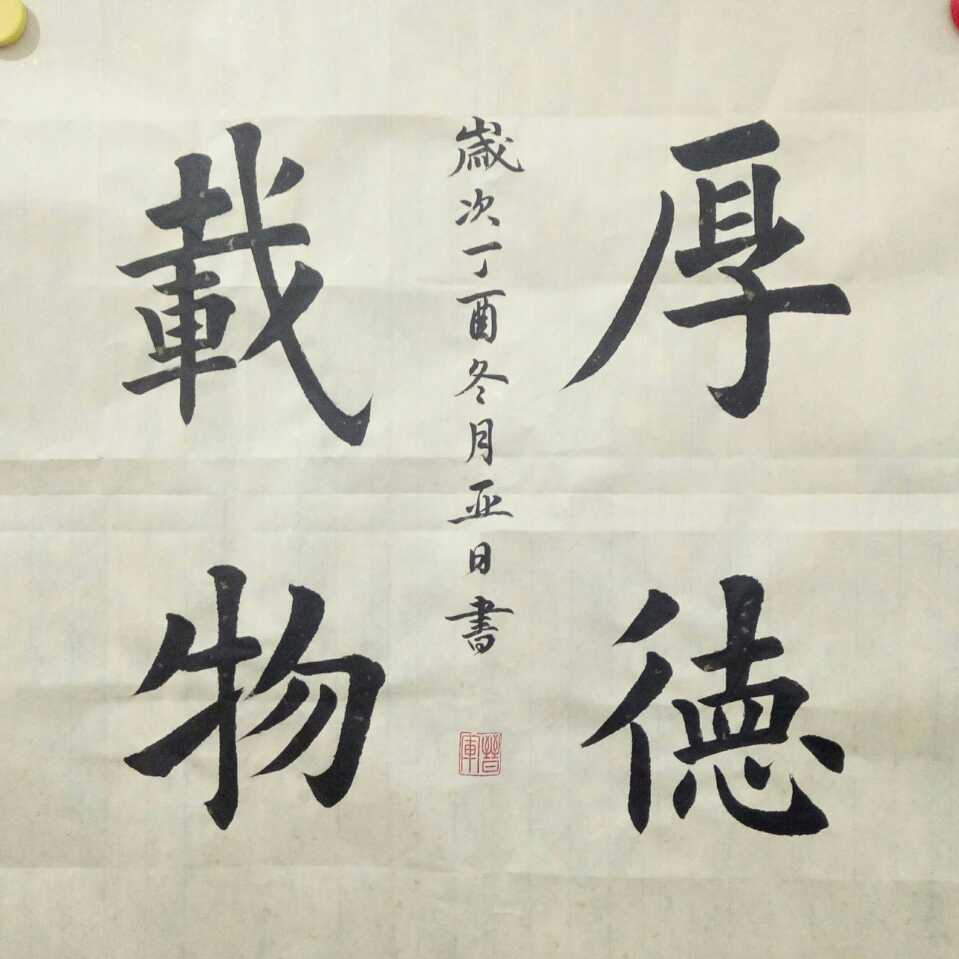 厚德
載物
歲次丁酉冬月亚日書